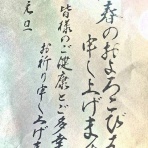 春のおよろこびを
申し上げます
皆様のご健康とご多幸
お祈り申し上げま
元旦